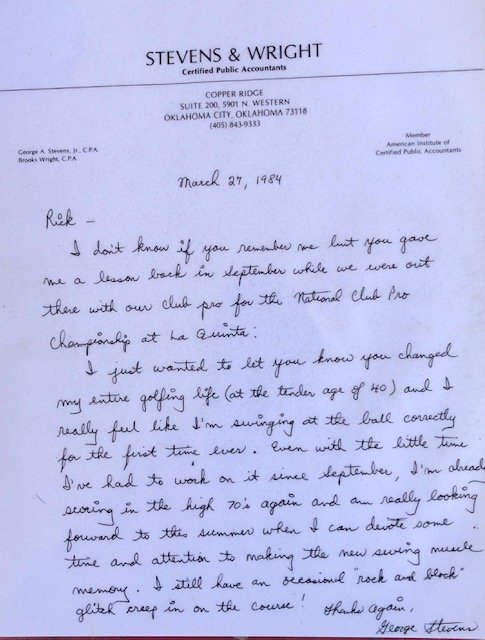 STEVENS & WRIGHT
Certified Public Accountants
COPPER RIDGE
SUITE 200, 5901 N. WESTERN
OKLAHOMA CITY, OKLAHOMA 73118
(405) 843-9333
George A. Stevens, Jr., C.P.A.
Brooks Wright, C.P.A.
Member
American Institute of
Certified Public Accountants
March 27, 1984
Rick -
I don't know if you remember me but you gave
me a lesson back in September while we were out
there with our club pro for the National Club Pro
Championship at La Quinta:
I just wanted to let you know you changed
my entire golfing life (at the tender age of 40) and I
really feel like I'm swinging at the ball correctly
for the first time ever. Even with the little time
I've had to work on it since September, I'm already
scoring in the high 70's again and am really looking
forward to this summer when I can devote some
time and attention to making the new swing muscle
memory. I still have an occasional "rock and block"
glitch creep in on the course! Thanks Again,
George Stevens